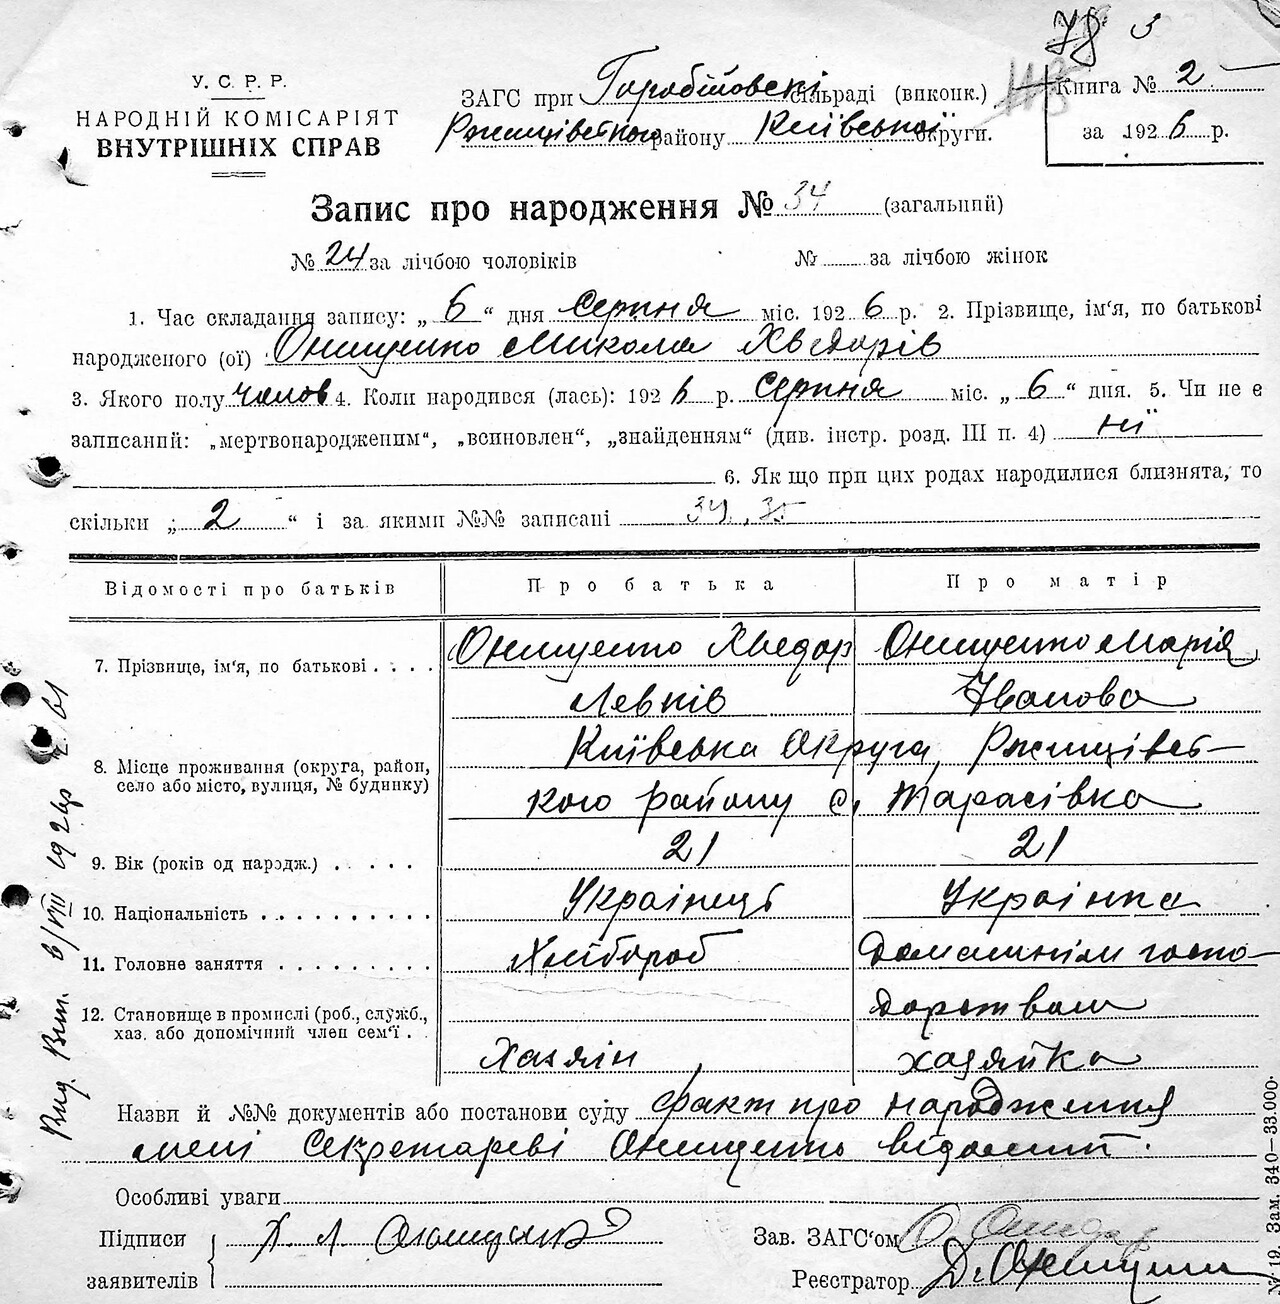 78 3
У. С. Р. Р.
НАРОДНІЙ КОМІСАРІЯТ
ВНУТРІШНІХ СПРАВ
ЗАГС при Горобіївські сільраді (виконк.)
Ржищівського району Київської округи.
Книга № 2
за 1926 р.
Запис про народження № 34 (загальний)
№ 24 за лічбою чоловіків № за лічбою жінок
1. Час складання запису: „ 6 “ дня серпня міс. 1926 р. 2. Прізвище, ім‘я, по батькові
народженого (ої) Онищенко Микола Хведорів
3. Якого полу чолов 4. Коли народився (лась): 1926 р. Серпня міс. „ 6 “ дня. 5. Чи не є
записаний: „мертвонародженим“, „всиновлен“, „знайденням“ (див. інстр. розд. III п. 4) ні
6. Як що при цих родах народилися близнята, то
скільки „ 2 “ і за якими №№ записані 34, 35
Відомості про батьків Про батька Про матір
7. Прізвище, ім‘я, по батькові . . . . Онищенко Хведор Онищенко Марія
Левків Іванова
8. Місце проживання (округа, район, Київська округа, Ржищівсь-
село або місто, вулиця, № будинку) кого району с. Тарасівка
9. Вік (років од народж.) . . . . . 21 21
10. Національність . . . . . . . . . . Українець Українка
11. Головне заняття . . . . . . . . . Хлібороб Домашнім госпо-
дарством
12. Становище в промислі (роб., служб.,
хаз. або допомічний член сем‘ї . . Хазяїн хазяйка
Назви й №№ документів або постанови суду факт про народження
мені Секретареві Онищенко відомий.
Особливі уваги
Підписи Х. Л. Онищенко Зав. ЗАГС‘ом
заявителів Реєстратор Д. Онищенко
Вид. Вип. 6/VIII 1926р
№ 19. Зам. 340—33.000.